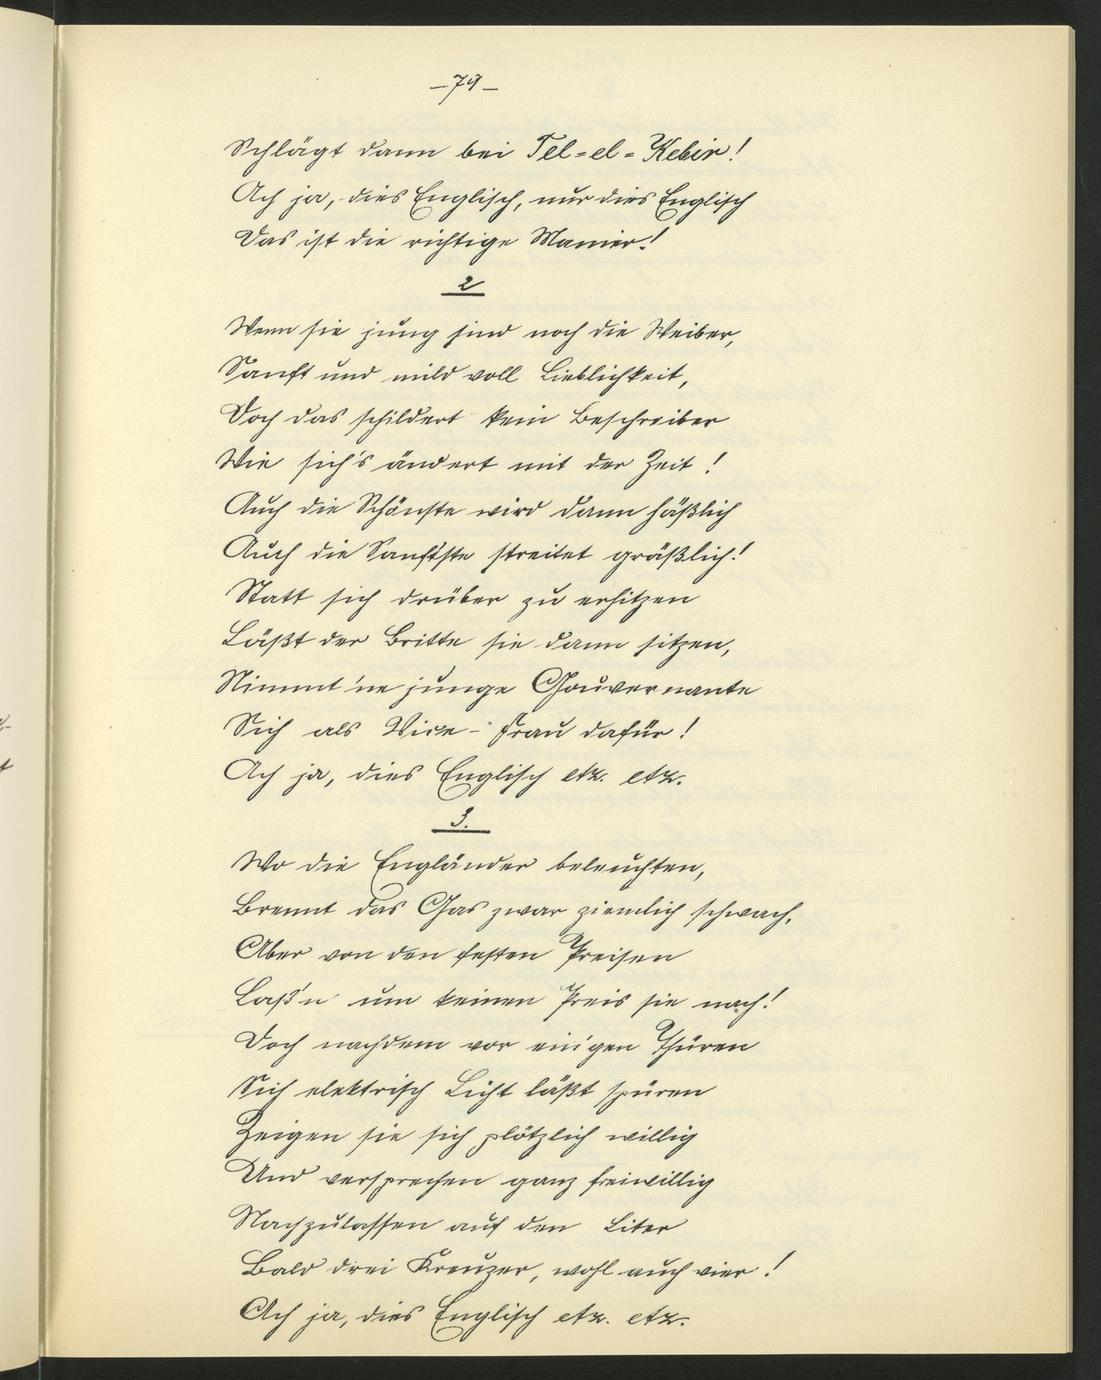 –79–
Schlägt dann bei Tel=el=Kebir!
Ach ja, dies Englisch, nur dies Englisch
Das ist die richtige Manier!
2
Wenn sie jung sind noch die Weiber,
Sanft und mild voll Lieblichkeit,
Doch das schildert kein Beschreiber
Wie sich's ändert mit der Zeit!
Auch die Schönste wird dann häßlich
Auch die Sanftste streitet gräßlich!
Statt sich drüber zu erhitzen
Läßt der Britte sie dann sitzen,
Nimmt 'ne junge Gouvernante
Sich als Vice-Frau dafür!
Ach ja, dies Englisch etz. etz.
3.
Wo die Engländer beleuchten,
Brennt das Gas zwar ziemlich schwach,
Aber von den festen Preisen
Laß'n um keinen Preis sie nach!
Doch nachdem vor ein'gen Thüren
Sich elektrisch Licht läßt spüren
Zeigen sie sich plötzlich willig
Und versprechen ganz freiwillig
Nachzulassen auf den Liter
Bald drei Kreuzer, wohl auch vier!
Ach ja, dies Englisch etz. etz.